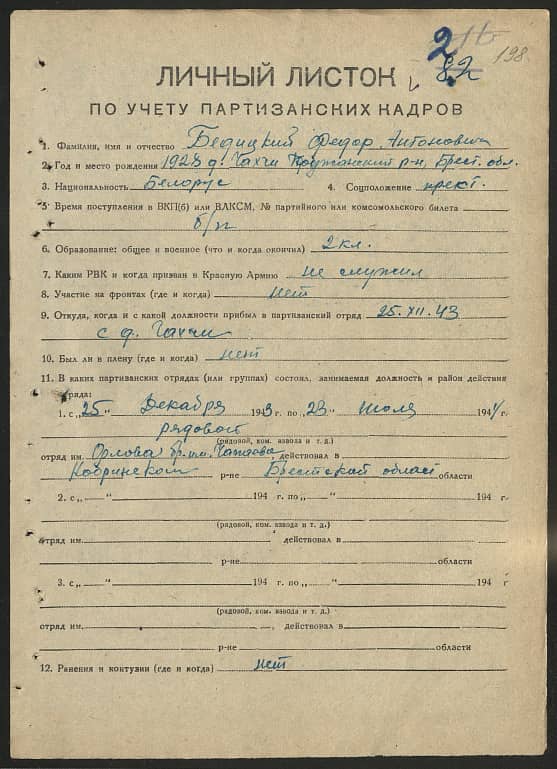 198
82
ЛИЧНЫЙ ЛИСТОК
ПО УЧЕТУ ПАРТИЗАНСКИХ КАДРОВ
1. Фамилия, имя и отчество Бедицкий Федор Антонович
2. Год и место рождения 1923 д. Чахчи Пружанский р-н, Брест. обл.
3. Национальность Белорус 4. Соцположение крест.
5. Время поступления в ВКП(б) или ВЛКСМ, № партийного или комсомольского билета
б/п
6. Образование: общее и военное (что и когда окончил) 2 кл.
7. Каким РВК и когда призван в Красную Армию не служил
8. Участие на фронтах (где и когда) нет
9. Откуда, когда и с какой должности прибыл в партизанский отряд 25.XII.43
с д. Чахчи
10. Был ли в плену (где и когда) нет
11. В каких партизанских отрядах (или группах) состоял, занимаемая должность и район действия
отряда:
1. с „25“ Декабря 1943 г. по „23“ июля 1944 г.
рядовой
(рядовой, ком. взвода и т. д.)
отряд им. Орлова бр. им. Чапаева, действовал в
Кобринском р-не Брестской област области
2. с „ “ 194 г. по „ “ 194 г.
(рядовой, ком. взвода и т. д.)
отряд им. действовал в
р-не области
3. с „ “ 194 г. по „ “ 194 г
(рядовой, ком. взвода и т. д.)
отряд им. , действовал в
р-не области
12. Ранения и контузии (где и когда) нет